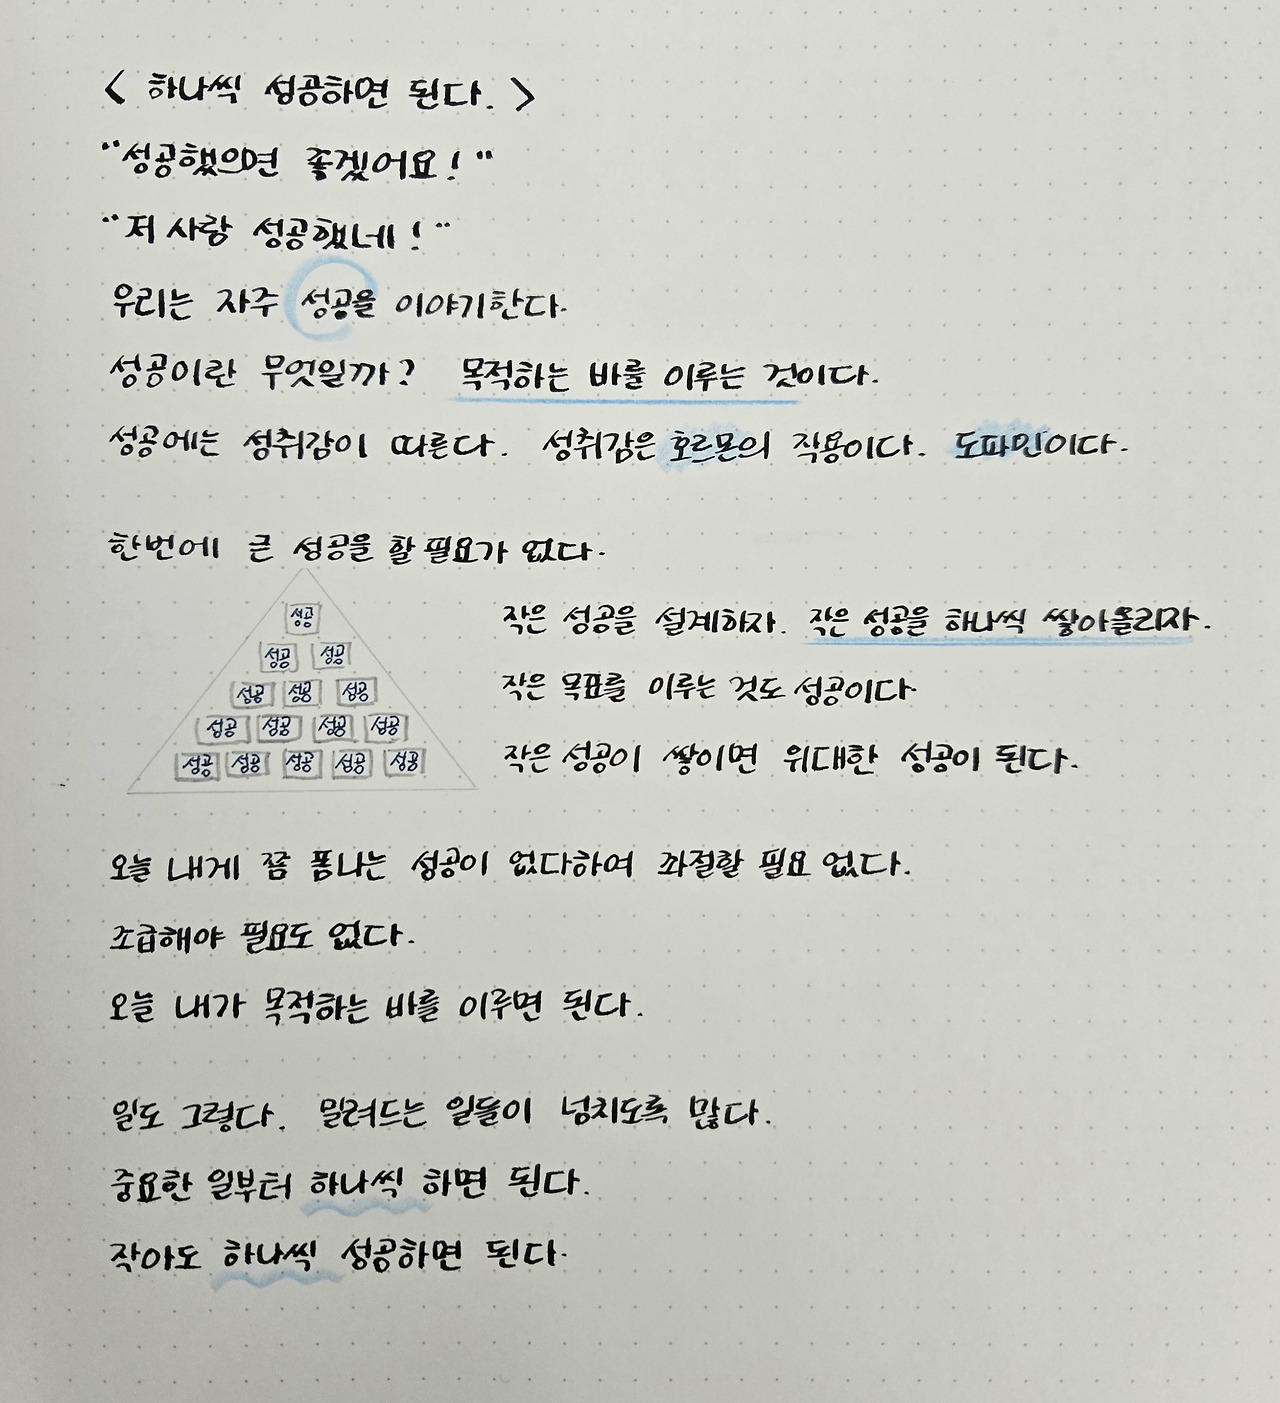 < 하나씩 성공하면 된다. >
"성공했으면 좋겠어요!"
"저 사람 성공했네!"
우리는 자주 성공을 이야기한다.
성공이란 무엇일까? 목적하는 바를 이루는 것이다.
성공에는 성취감이 따른다. 성취감은 호르몬의 작용이다. 도파민이다.
한번에 큰 성공을 할 필요가 없다.
성공
성공 성공
성공 성공 성공
성공 성공 성공 성공
성공 성공 성공 성공 성공
작은 성공을 설계하자. 작은 성공을 하나씩 쌓아올리자.
작은 목표를 이루는 것도 성공이다.
작은 성공이 쌓이면 위대한 성공이 된다.
오늘 내게 폼나는 성공이 없다하여 좌절할 필요 없다.
조급해야 필요도 없다.
오늘 내가 목적하는 바를 이루면 된다.
일도 그렇다. 밀려드는 일들이 넘치도록 많다.
중요한 일부터 하나씩 하면 된다.
작아도 하나씩 성공하면 된다.